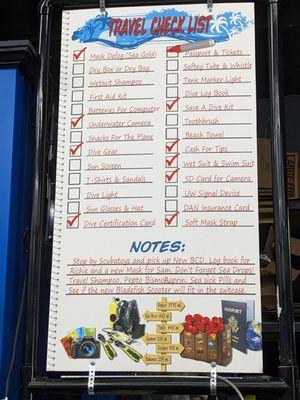 TRAVEL CHECK LIST
Mask Defog (Sea Gold)
Dry Box or Dry Bag
Wetsuit Shampoo
First Aid Kit
Batteries For Computer
Underwater Camera
Snacks For The Plane
Dive Gear
Sun Screen
T-Shirts & Sandals
Dive Light
Sun Glasses & Hat
Dive Certification Card
Passport & Tickets
Saftey Tube & Whistle
Tank Marker Light
Dive Log Book
Save A Dive Kit
Toothbrush
Beach Towel
Cash For Tips
Wet Suit & Swim Suit
SD Card for Camera
UW Signal Device
DAN Insurance Card
Soft Mask Strap
NOTES:
Stop by Scubatoys and pick up New BCD. Log book for
Richie and a new Mask for Sam. Don't Forget Sea Drops!
Travel Shampoo, Pepto BismoHsprin. Sea sick Pills and
See if the new Bladefish Scooter will fit in the suitcase.
Hawaii
Key West
Cayman
Cozumel
Bahamas
PASSPORT